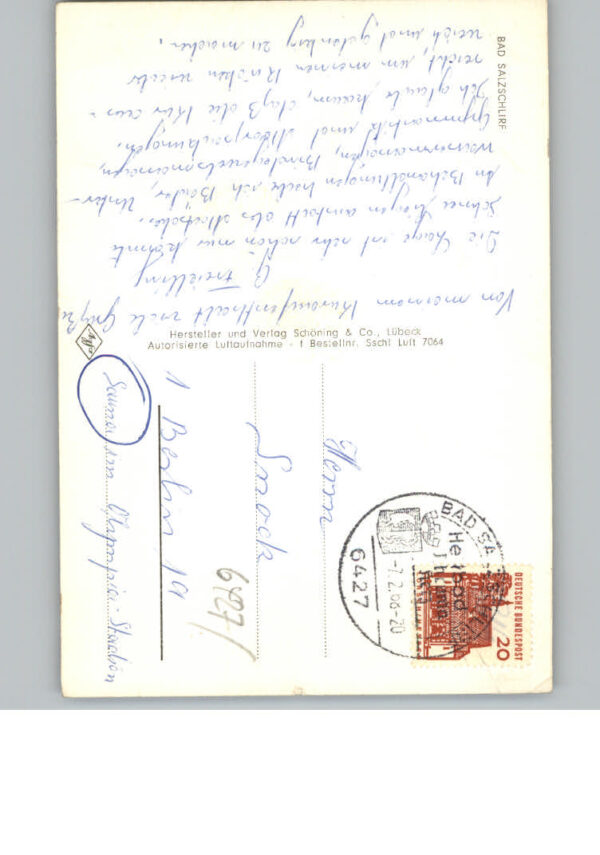 BAD SALZSCHLIRF
Von meinem Kuraufenthalt viele Grüße
G.
Die Tage ist sehr schön nur könnte
Schnee liegen anstatt
An Behandlungen habe ich Bäder, Unter-
wassermassagen, Bindegewebsmassagen,
Gymnastik und Moorpackungen.
Ich glaube kaum, daß die Kur aus-
reicht, um meinen Rücken wieder
weich und gelenkig zu machen.
Hersteller und Verlag Schöning & Co., Lübeck
Autorisierte Luftaufnahme - f Bestellnr. Sschl Luft 7064
Agfa
Herrn
1 Berlin 19
Sauna im Olympia-Stadion
6427/
BAD SALZSCHLIRF
Heilbad
6427
-7.2.66-20
DEUTSCHE BUNDESPOST
20